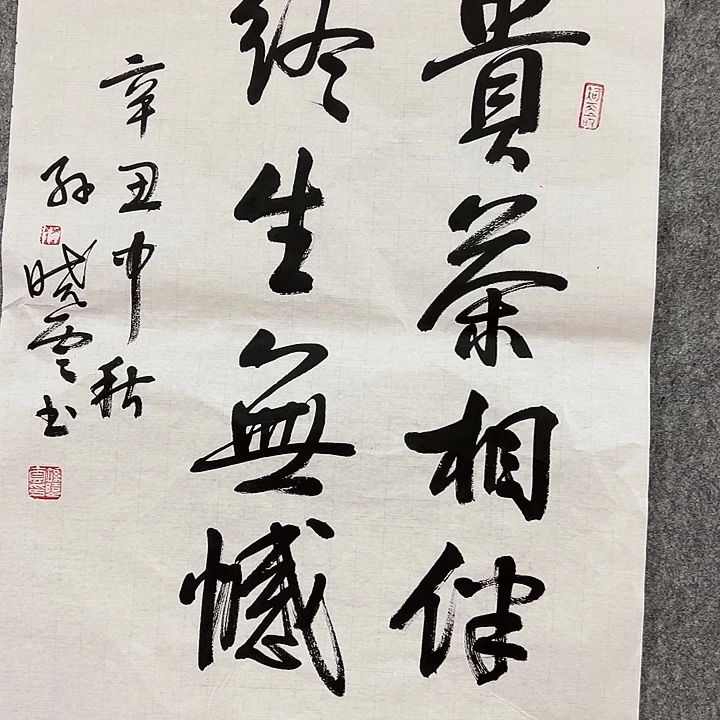 貴茶相伴
終生無憾
辛丑中秋
孙晓雲书